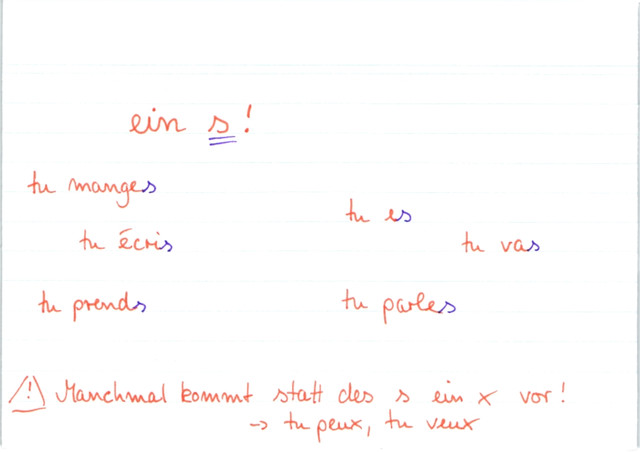 ein s!
tu manges
tu es
tu écris
tu vas
tu prends
tu parles
! Manchmal kommt statt des s ein x vor!
→ tu peux, tu veux